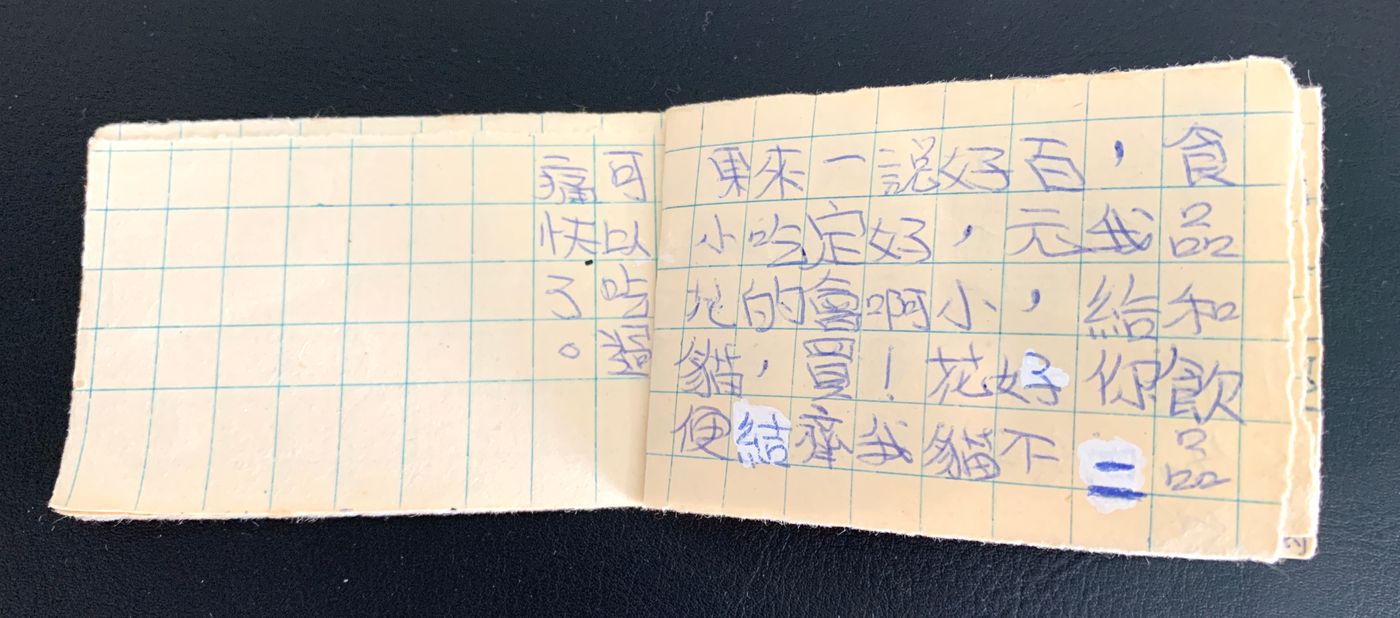 食品和飲品
，我給你二
百元，好不
好，小花貓
說好啊！我
一定會買齊
來吃的，結
果小花貓便
可以
痛快了。